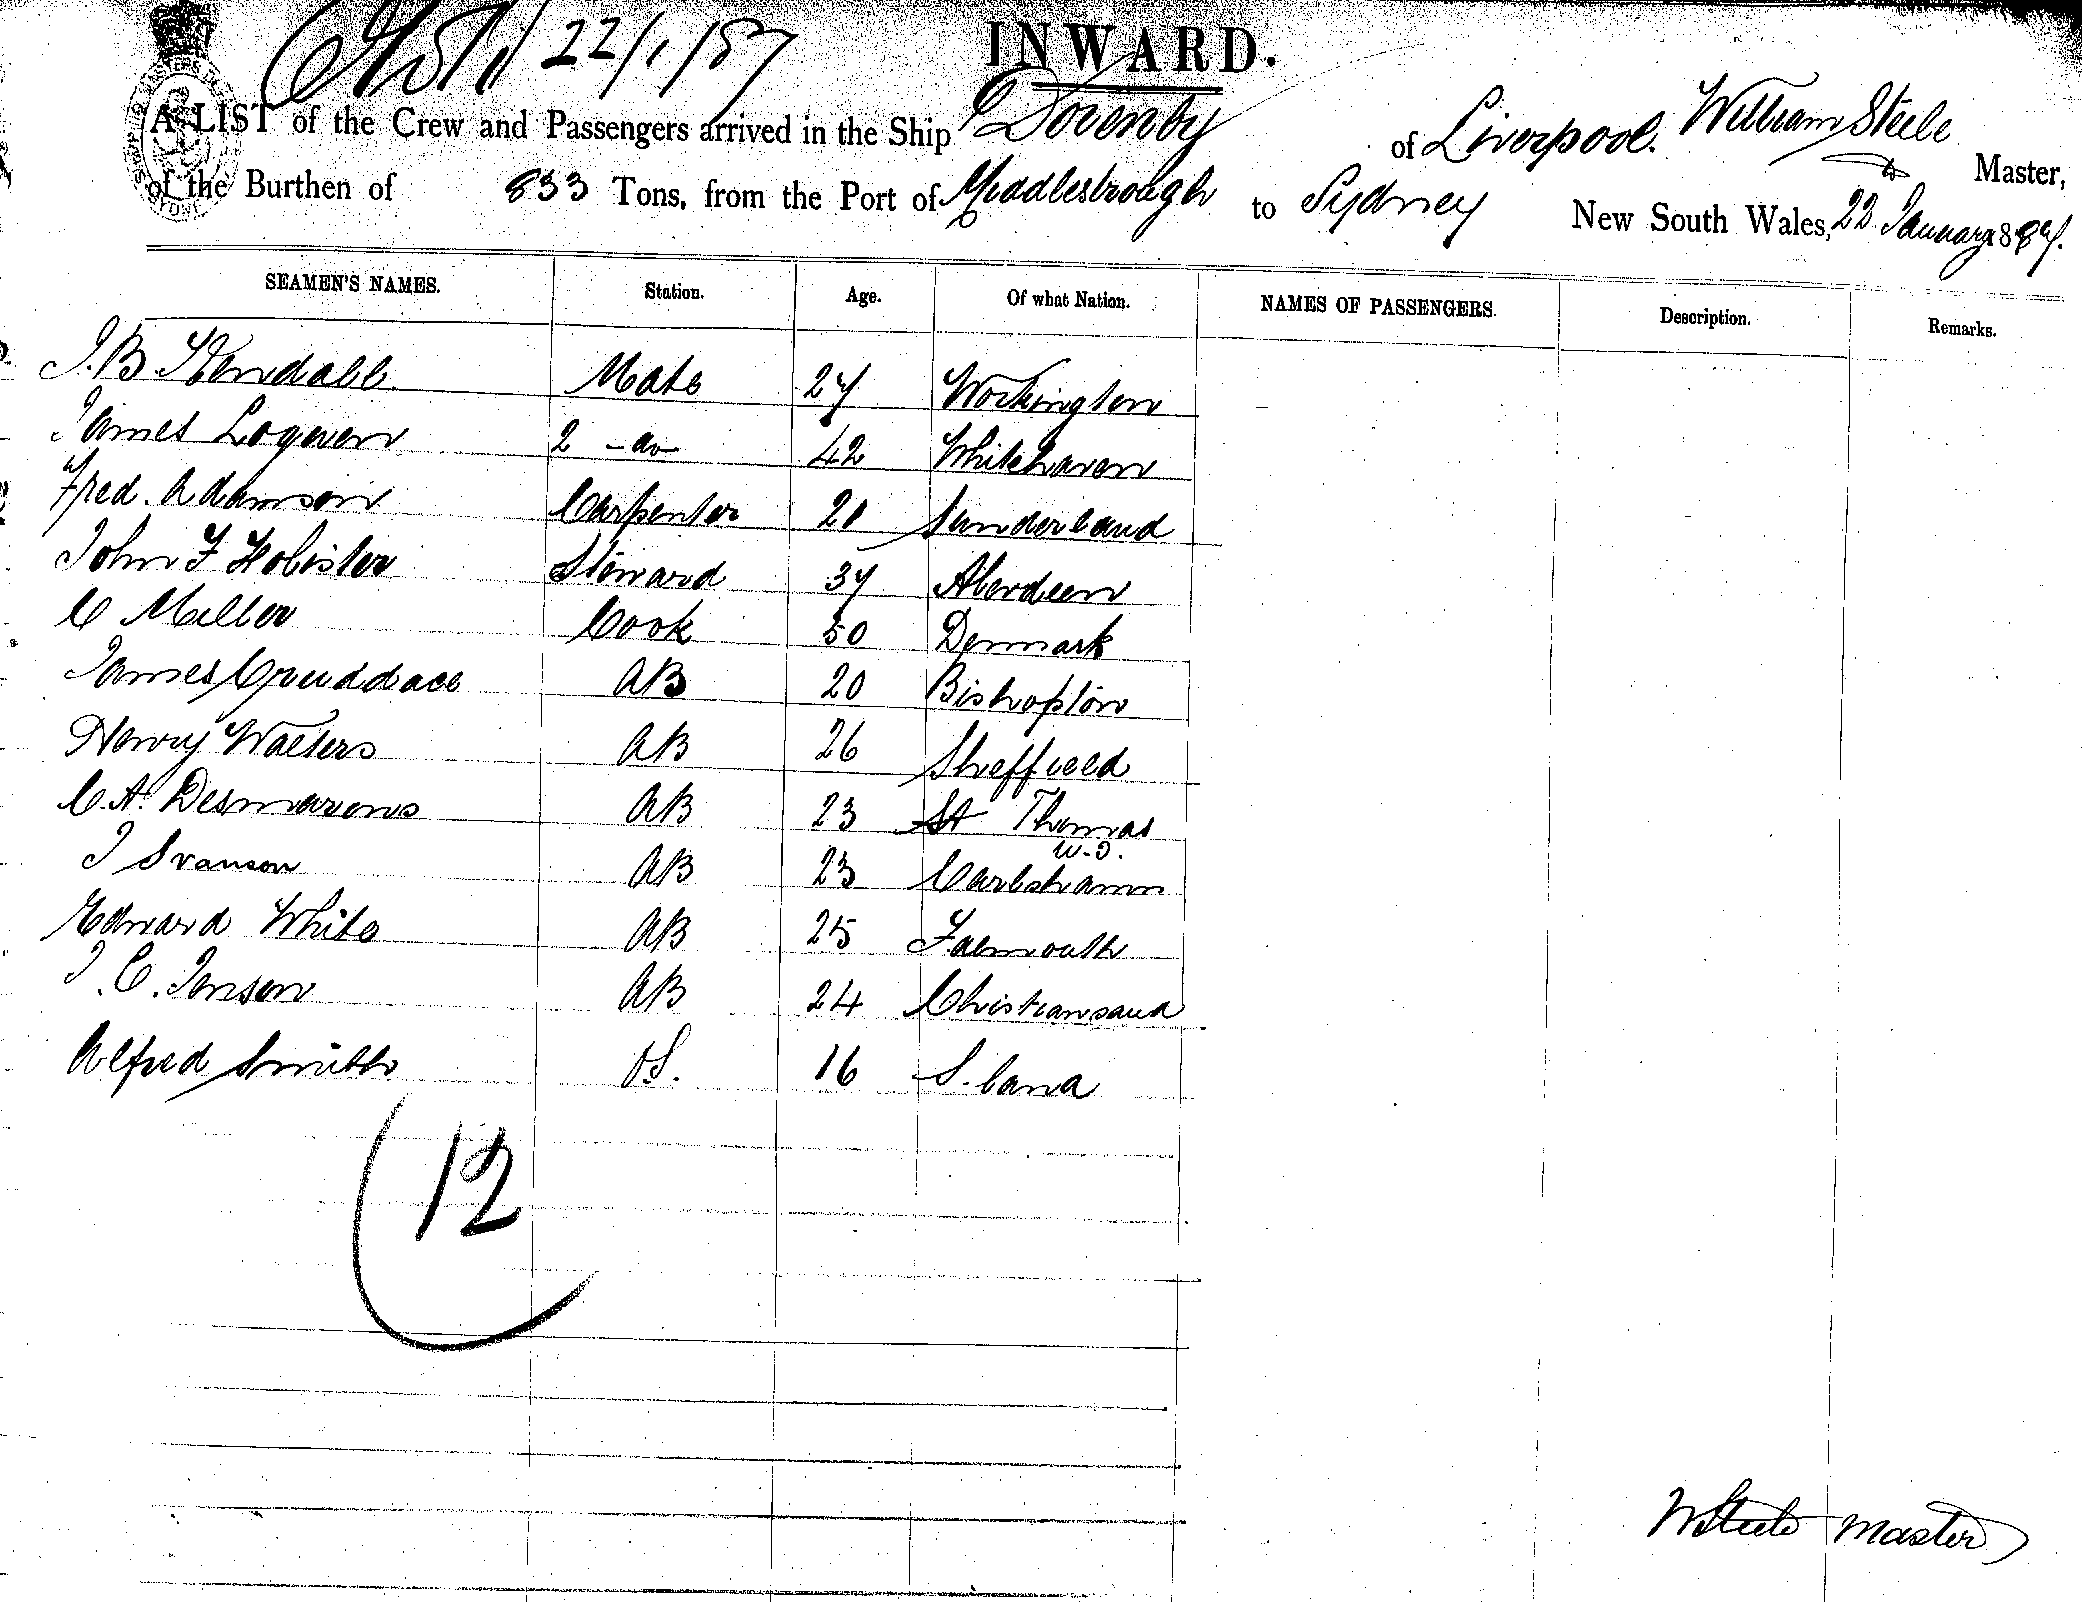 22/1/87
INWARD.
A LIST of the Crew and Passengers arrived in the Ship Dovenby of Liverpool. William Steele Master,
of the Burthen of 833 Tons, from the Port of Middlesbrough to Sydney New South Wales, 22 January 1887.
SEAMEN'S NAMES. Station. Age. Of what Nation. NAMES OF PASSENGERS. Description. Remarks.
J. B. Kendall Mate 27 Workington
James 2 - do 42 Whitehaven
Fred. Adamson Carpenter 20 Sunderland
John F Steward 37 Aberdeen
C Miller Cook 50 Denmark
James Cruddace AB 20 Bishopton
Henry Walters AB 26 Sheffield
C. A. AB 23 St Thomas
W.I.
J Svanson AB 23 Carlshamn
Edward White AB 25 Falmouth
J. C. Jensen AB 24 Christiansand
Alfred Smith OS. 16
12
W Steele Master